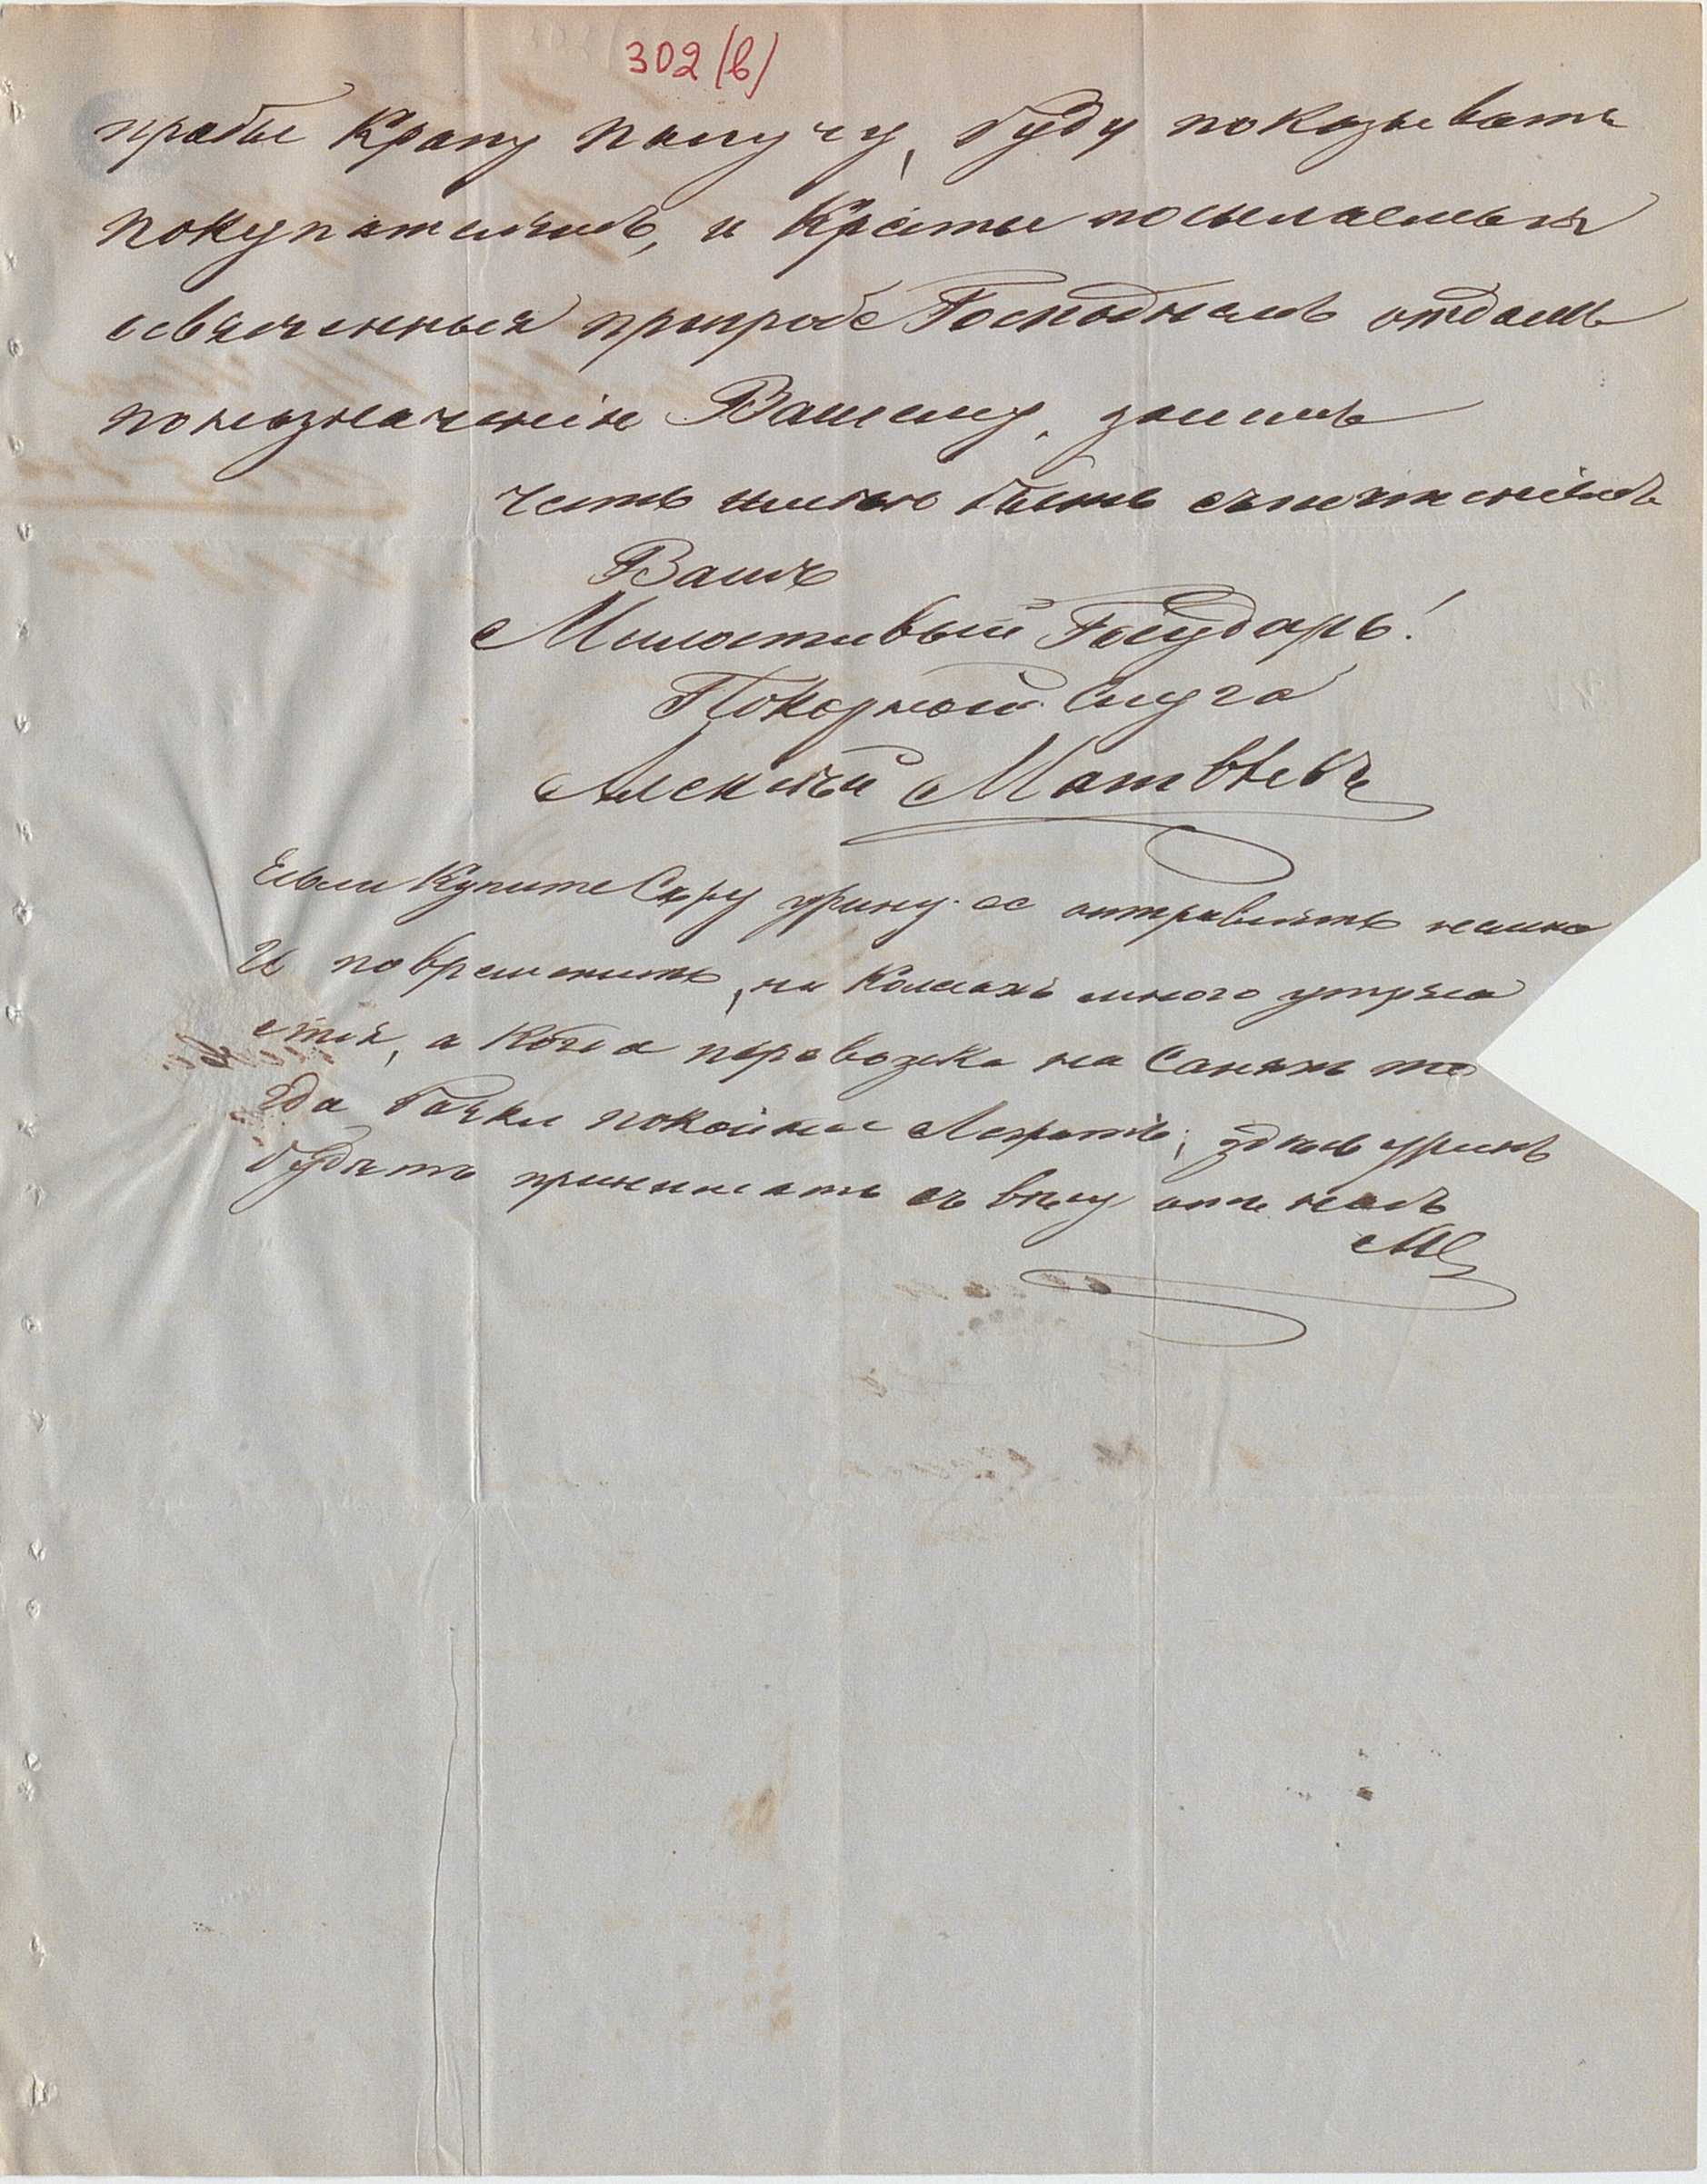 302 (в)
пробы Крапу получу, буду показывать
покупателямъ, и Кресты посылаемыя
освященныя пригробе Господнемъ отдамъ
поназначенію Вашему, засимъ
честь имею быть съпочтеніемъ
Вашъ
Милостивый Государь!
Покорной Слуга
Алексей Матвѣевъ
Если Купите Сыру урину ее отправить можно
И повременить, на Колесахъ много утряса
ется, а Когда перевозка на Саняхъ то
гда бочки покойнее Лежатъ, здесь
будутъ принимать съ весу отъ насъ
МС